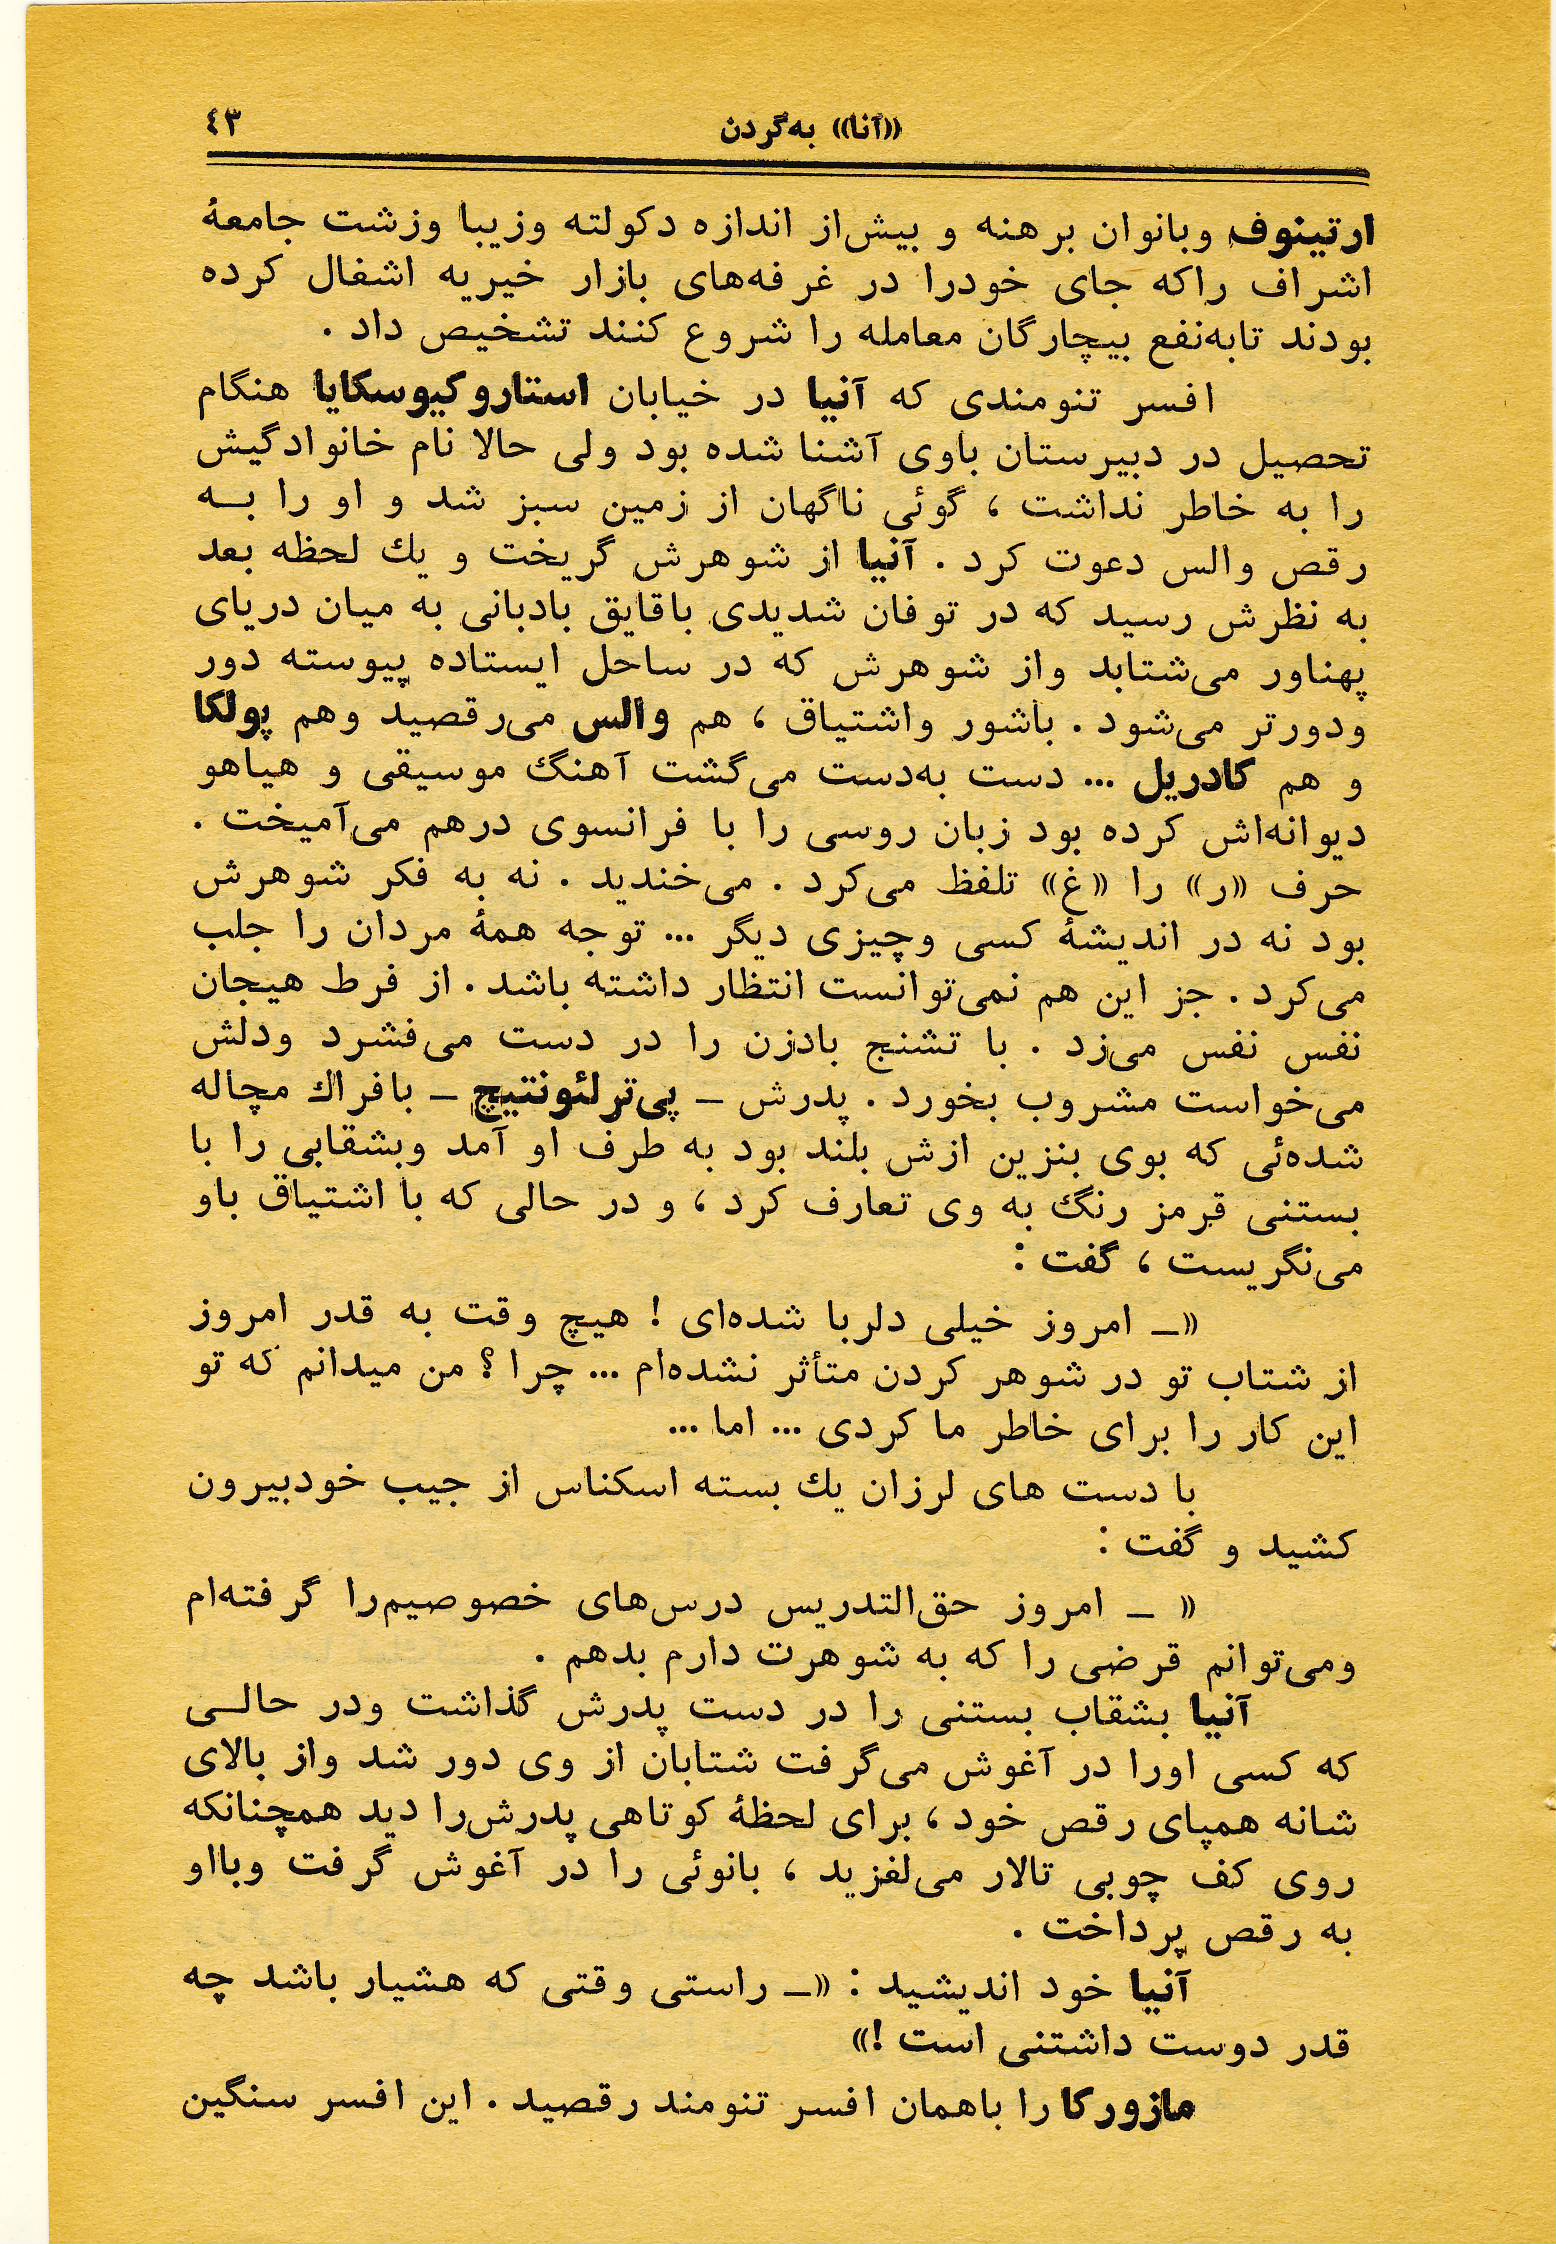 «آنا» به‌گردن
٤٣
ارتینوف وبانوان برهنه و بیش‌از اندازه دکولته وزیبا وزشت جامعهٔ
اشراف راکه جای خودرا در غرفه‌های بازار خیریه اشغال کرده
بودند تابه‌نفع بیچارگان معامله را شروع کنند تشخیص داد .
افسر تنومندی که آنیا در خیابان استاروکیوسکایا هنگام
تحصیل در دبیرستان باوی آشنا شده بود ولی حالا نام خانوادگیش
را به خاطر نداشت ، گوئی ناگهان از زمین سبز شد و او را بــه
رقص والس دعوت کرد . آنیا از شوهرش گریخت و یك لحظه بعد
به نظرش رسید که در توفان شدیدی باقایق بادبانی به میان دریای
پهناور می‌شتابد واز شوهرش که در ساحل ایستاده پیوسته دور
ودورتر می‌شود . باشور واشتیاق ، هم والس می‌رقصید وهم پولکا
و هم کادریل ... دست به‌دست می‌گشت آهنگ موسیقی و هیاهو
دیوانه‌اش کرده بود زبان روسی را با فرانسوی درهم می‌آمیخت .
حرف «ر» را «غ» تلفظ می‌کرد . می‌خندید . نه به فکر شوهرش
بود نه در اندیشهٔ کسی وچیزی دیگر ... توجه همهٔ مردان را جلب
می‌کرد . جز این هم نمی‌توانست انتظار داشته باشد . از فرط هیجان
نفس نفس می‌زد . با تشنج بادزن را در دست می‌فشرد ودلش
می‌خواست مشروب بخورد . پدرش ـ پی‌ترلئونتیچ ـ بافراك مچاله
شده‌ئی که بوی بنزین ازش بلند بود به طرف او آمد وبشقابی را با
بستنی قرمز رنگ به وی تعارف کرد ، و در حالی که با اشتیاق باو
می‌نگریست ، گفت :
«ـ امروز خیلی دلربا شده‌ای ! هیچ وقت به قدر امروز
از شتاب تو در شوهر کردن متأثر نشده‌ام ... چرا ؟ من میدانم که تو
این کار را برای خاطر ما کردی ... اما ...
با دست های لرزان یك بسته اسکناس از جیب خودبیرون
کشید و گفت :
« ـ امروز حق‌التدریس درس‌های خصوصیم‌را گرفته‌ام
ومی‌توانم قرضی را که به شوهرت دارم بدهم .
آنیا بشقاب بستنی را در دست پدرش گذاشت ودر حالــی
که کسی اورا در آغوش می‌گرفت شتابان از وی دور شد واز بالای
شانه همپای رقص خود ، برای لحظهٔ کوتاهی پدرش‌را دید همچنانکه
روی کف چوبی تالار می‌لغزید ، بانوئی را در آغوش گرفت وبااو
به رقص پرداخت .
آنیا خود اندیشید : «ـ راستی وقتی که هشیار باشد چه
قدر دوست داشتنی است !»
مازورکا را باهمان افسر تنومند رقصید . این افسر سنگین